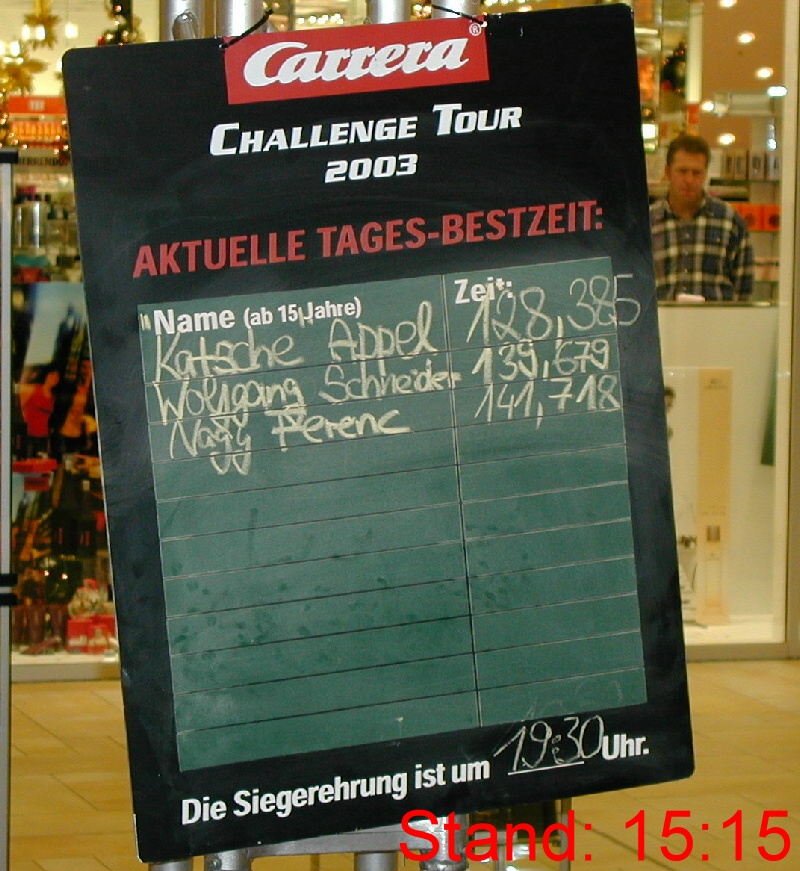 Carrera®
CHALLENGE TOUR
2003
AKTUELLE TAGES-BESTZEIT:
Name (ab 15 Jahre) Zeit:
Katsche Appel 128,385
Wolfgang Schneider 139,679
Nagy Ferenc 141,718
Die Siegerehrung ist um 19:30 Uhr.
Stand: 15:15